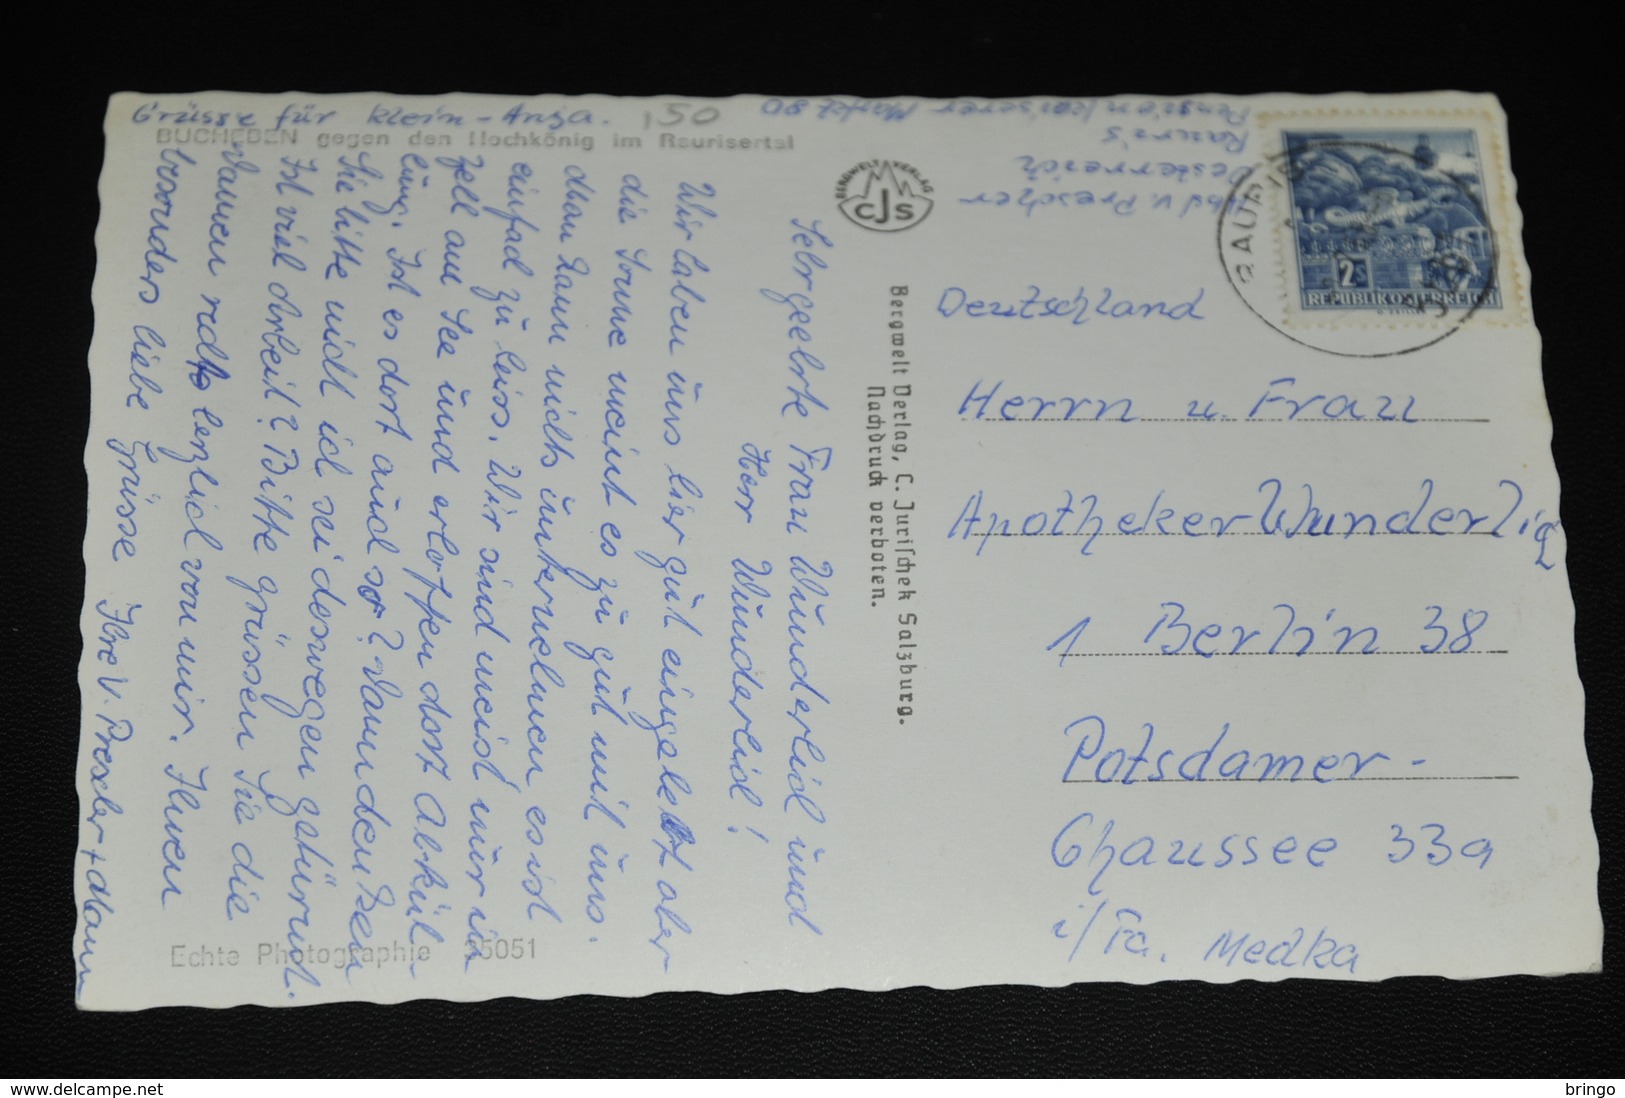 Grüsse für klein-Anja.
,50
BUCHEBEN gegen den Hochkönig im Raurisertal
Abs v. Prescher
Oesterreich
Rauris
Pension Kaiserer Markt 80
BERGWELT VERLAG
CJS
RAURIS
2S
REPUBLIK ÖSTERREICH
Sehrgeehrte Frau Wunderlich und
Herr Wunderlich!
Wir haben uns hier gut eingelebt aber
die Sonne meint es zu gut mit uns.
Man kann nichts unternehmen es ist
einfach zu heiss. Wir sind meist nur in
Zell am See und erhoffen dort Abküh-
lung. Ist es dort auch so? Vom denken
Sie bitte nicht ich sei deswegen gekürrt.
Ist viel Arbeit? Bitte grüssen Sie die
Damen rechts herzlich von mir. Ihnen
besonders liebe Grüsse Ihre V. Prescher + Mann
Bergwelt Verlag, C. Jurischek Salzburg.
Nachdruck verboten.
Deutschland
Herrn u. Frau
Apotheker Wunderlich
1 Berlin 38
Potsdamer-
Chaussee 33a
i/Fa. Medka
Echte Photographie 25051
delcampe.net
bringo